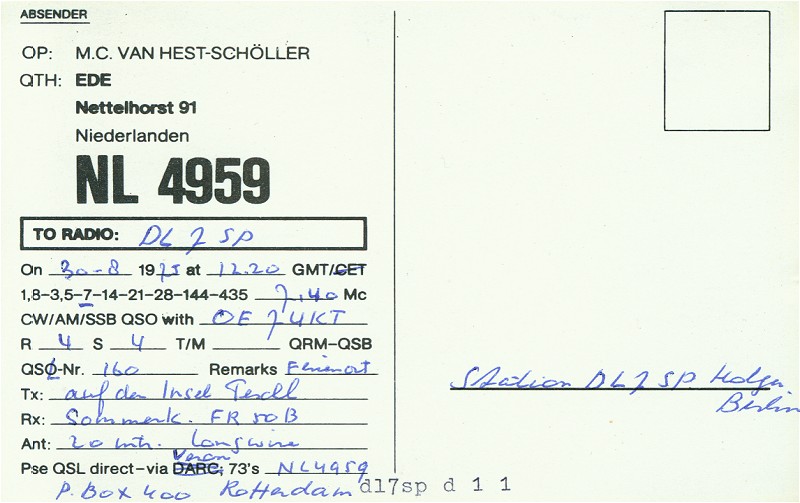 ABSENDER
OP: M.C. VAN HEST-SCHÖLLER
QTH: EDE
Nettelhorst 91
Niederlanden
NL 4959
TO RADIO: DL 7 SP
On 30-8 1975 at 12.20 GMT/CET
1,8-3,5-7-14-21-28-144-435 7,40 Mc
CW/AM/SSB QSO with OE 7 UKT
R 4 S 4 T/M QRM-QSB
QSO-Nr. 160 Remarks Ferienort
Tx: auf den Insel Texel
Rx: Sommerk. FR 50B
Ant: 20 mtr. Longwire
Veron
Pse QSL direct-via DARC; 73's NL4959
P. Box 400 Rotterdam
Station DL 7 SP Holger
Berlin
dl7sp d 1 1